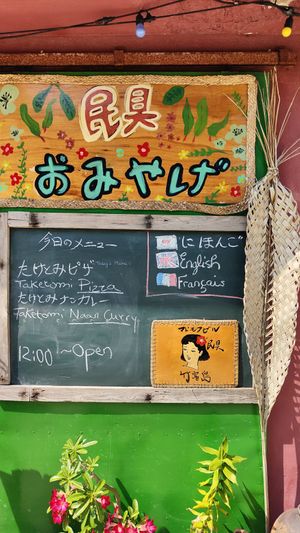 民具
おみやげ
今日のメニュー
Today's Menu
たけとみピザ
Taketomi Pizza
たけとみナンカレー
Taketomi Naan Curry
12:00〜Open
にほんご
English
Français
民具
竹富島